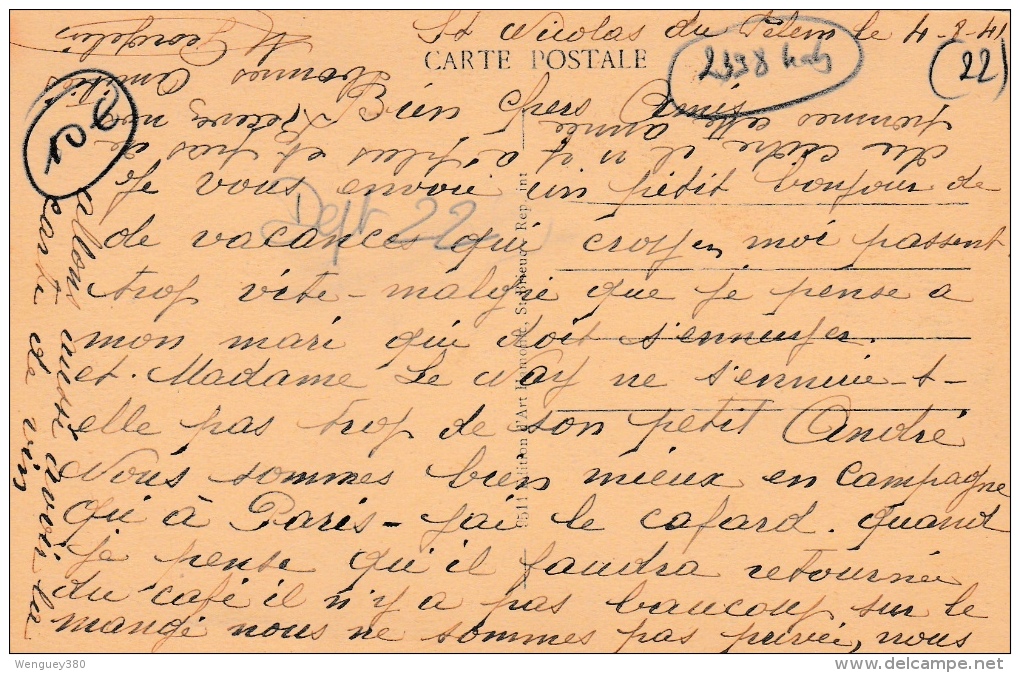 St Nicolas du Pelem le 4-8-41
CARTE POSTALE
2398
(22)
Bien chers Amis
Je vous envoie un petit bonjour de
de vacances qui croyez moi passent
trop vite - malgré que je pense a
mon mari qui doit s'ennuyer.
et. Madame Le Nay ne s'ennuie-t-
elle pas trop de son petit André
Nous sommes bien mieux en Campagne
qu'à Paris - j'ai le cafard. quand
je pense qu'il faudra retourner
du café il n'y a pas beaucoup sur le
mangé nous ne sommes pas privée, nous
allons aussi avoir la
carte de vin
du cidre il n'y a plus et pas de
pommes cette année
Recevez nos
bonnes Amitiés
M Georgelin
Dept 22
Edition d'Art St-Brieuc. Rep. int
Wenguey380
delcampe.net